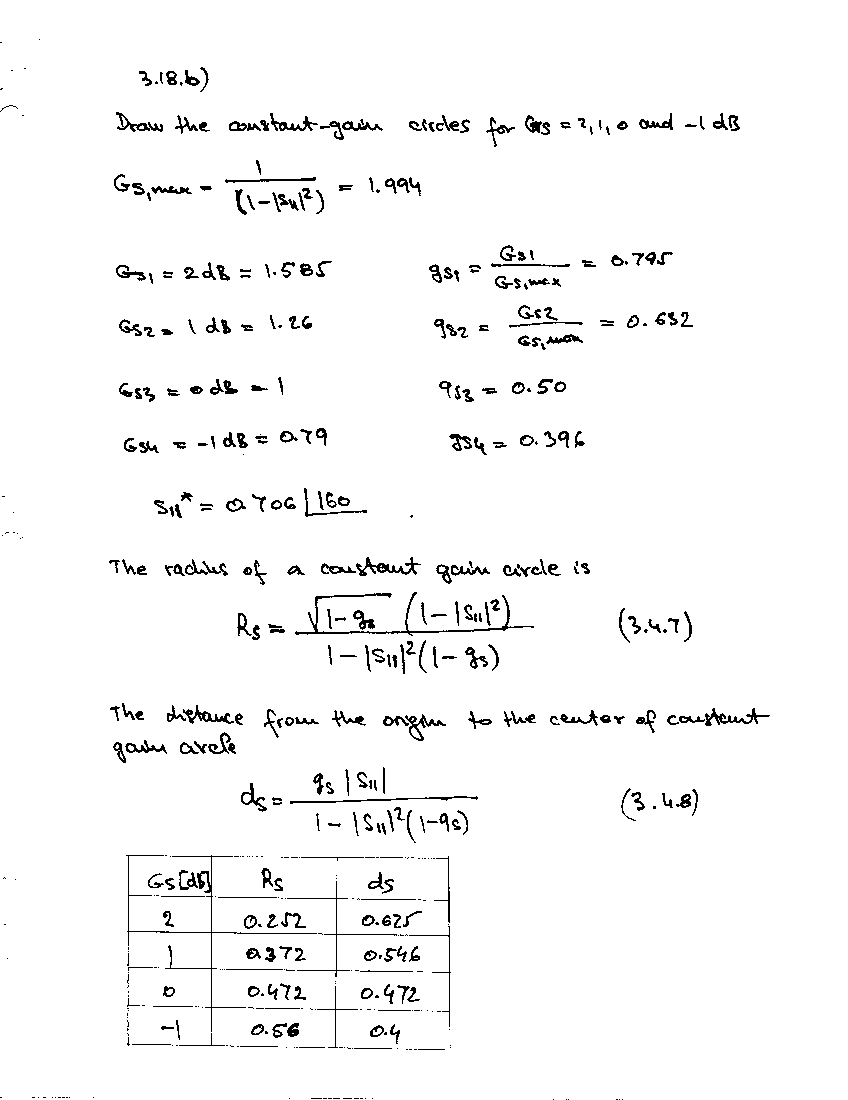 3.18.b)
Draw the constant-gain circles for Gs = 2, 1, 0 and -1 dB
Gs,max = 1 / (1-|S11|²) = 1.994
Gs1 = 2dB = 1.585    gs1 = Gs1 / Gs,max = 0.795
Gs2 = 1 dB = 1.26    gs2 = Gs2 / Gs,max = 0.632
Gs3 = 0 dB = 1    gs3 = 0.50
Gs4 = -1 dB = 0.79    gs4 = 0.396
S11* = 0.706 ∠160
The radius of a constant gain circle is
Rs = √(1-gs) (1-|S11|²) / 1-|S11|²(1-gs)    (3.4.7)
The distance from the origin to the center of constant
gain circle
ds = gs |S11| / 1-|S11|²(1-gs)    (3.4.8)
Gs[dB]    Rs    ds
2    0.252    0.625
1    0.372    0.546
0    0.472    0.472
-1    0.56    0.4